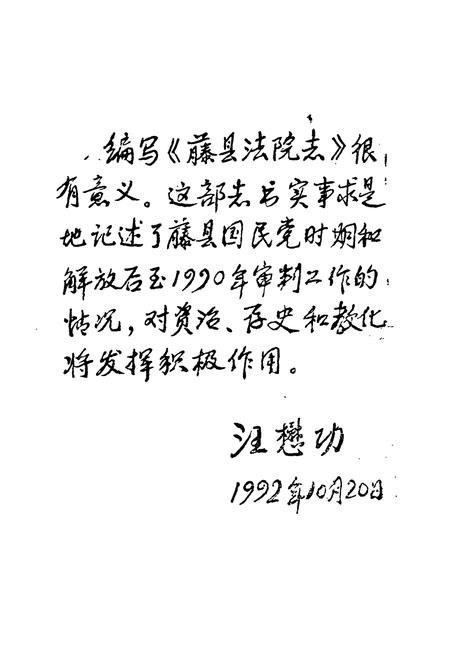 编写《藤县法院志》很
有意义。这部志书实事求是
地记述了藤县国民党时期和
解放后至1990年审判工作的
情况，对资治、存史和教化
将发挥积极作用。
汪懋功
1992年10月20日